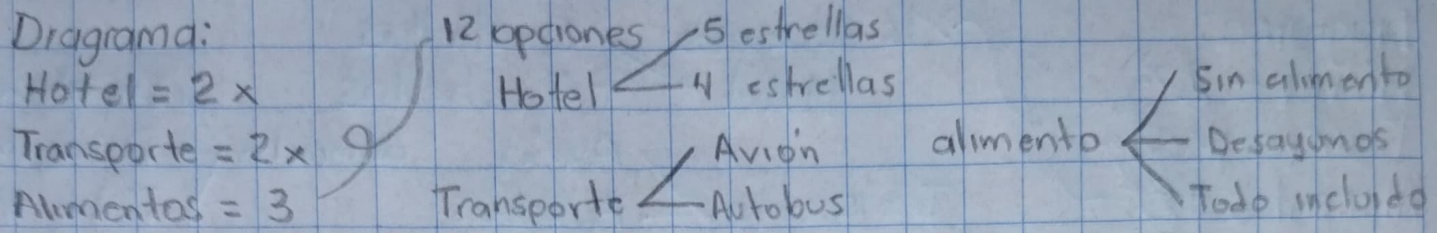 Diagrama:
Hotel = 2 x
Transporte = 2 x
Alimentos = 3
12 opciones
Hotel
5 estrellas
4 estrellas
Transporte
Avión
Autobus
alimento
Sin alimento
Desayunos
Todo incluido